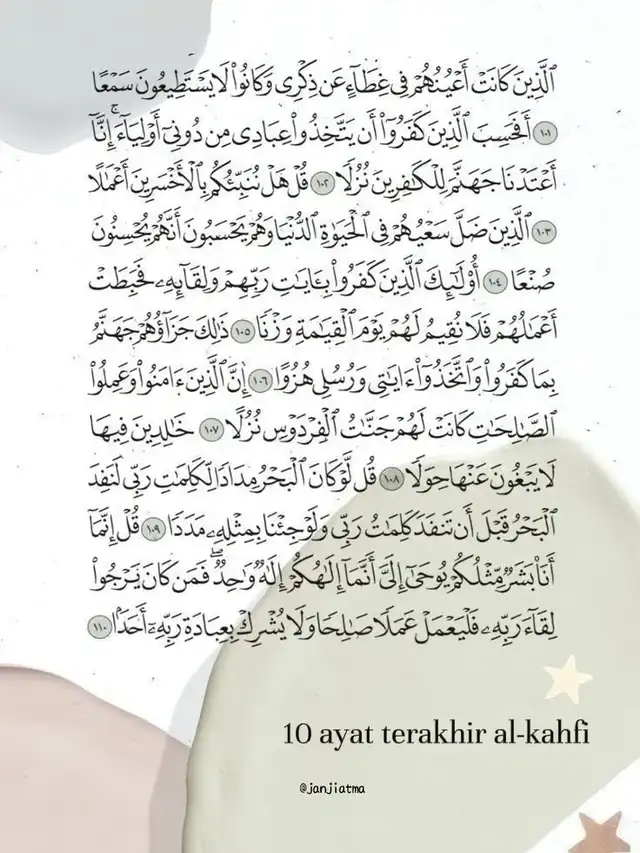 ٱلَّذِينَ كَانَتْ أَعْيُنُهُمْ فِى غِطَآءٍ عَن ذِكْرِى وَكَانُوا۟ لَا يَسْتَطِيعُونَ سَمْعًا
١٠١ أَفَحَسِبَ ٱلَّذِينَ كَفَرُوٓا۟ أَن يَتَّخِذُوا۟ عِبَادِى مِن دُونِىٓ أَوْلِيَآءَ ۚ إِنَّآ
أَعْتَدْنَا جَهَنَّمَ لِلْكَـٰفِرِينَ نُزُلًا ١٠٢ قُلْ هَلْ نُنَبِّئُكُم بِٱلْأَخْسَرِينَ أَعْمَـٰلًا
١٠٣ ٱلَّذِينَ ضَلَّ سَعْيُهُمْ فِى ٱلْحَيَوٰةِ ٱلدُّنْيَا وَهُمْ يَحْسَبُونَ أَنَّهُمْ يُحْسِنُونَ
صُنْعًا ١٠٤ أُو۟لَـٰٓئِكَ ٱلَّذِينَ كَفَرُوا۟ بِـَٔايَـٰتِ رَبِّهِمْ وَلِقَآئِهِۦ فَحَبِطَتْ
أَعْمَـٰلُهُمْ فَلَا نُقِيمُ لَهُمْ يَوْمَ ٱلْقِيَـٰمَةِ وَزْنًا ١٠٥ ذَٰلِكَ جَزَآؤُهُمْ جَهَنَّمُ
بِمَا كَفَرُوا۟ وَٱتَّخَذُوٓا۟ ءَايَـٰتِى وَرُسُلِى هُزُوًا ١٠٦ إِنَّ ٱلَّذِينَ ءَامَنُوا۟ وَعَمِلُوا۟
ٱلصَّـٰلِحَـٰتِ كَانَتْ لَهُمْ جَنَّـٰتُ ٱلْفِرْدَوْسِ نُزُلًا ١٠٧ خَـٰلِدِينَ فِيهَا
لَا يَبْغُونَ عَنْهَا حِوَلًا ١٠٨ قُل لَّوْ كَانَ ٱلْبَحْرُ مِدَادًا لِّكَلِمَـٰتِ رَبِّى لَنَفِدَ
ٱلْبَحْرُ قَبْلَ أَن تَنفَدَ كَلِمَـٰتُ رَبِّى وَلَوْ جِئْنَا بِمِثْلِهِۦ مَدَدًا ١٠٩ قُلْ إِنَّمَآ
أَنَا۠ بَشَرٌ مِّثْلُكُمْ يُوحَىٰٓ إِلَىَّ أَنَّمَآ إِلَـٰهُكُمْ إِلَـٰهٌ وَٰحِدٌ ۖ فَمَن كَانَ يَرْجُوا۟
لِقَآءَ رَبِّهِۦ فَلْيَعْمَلْ عَمَلًا صَـٰلِحًا وَلَا يُشْرِكْ بِعِبَادَةِ رَبِّهِۦٓ أَحَدًۢا ١١٠
10 ayat terakhir al-kahfi
@janjiatma